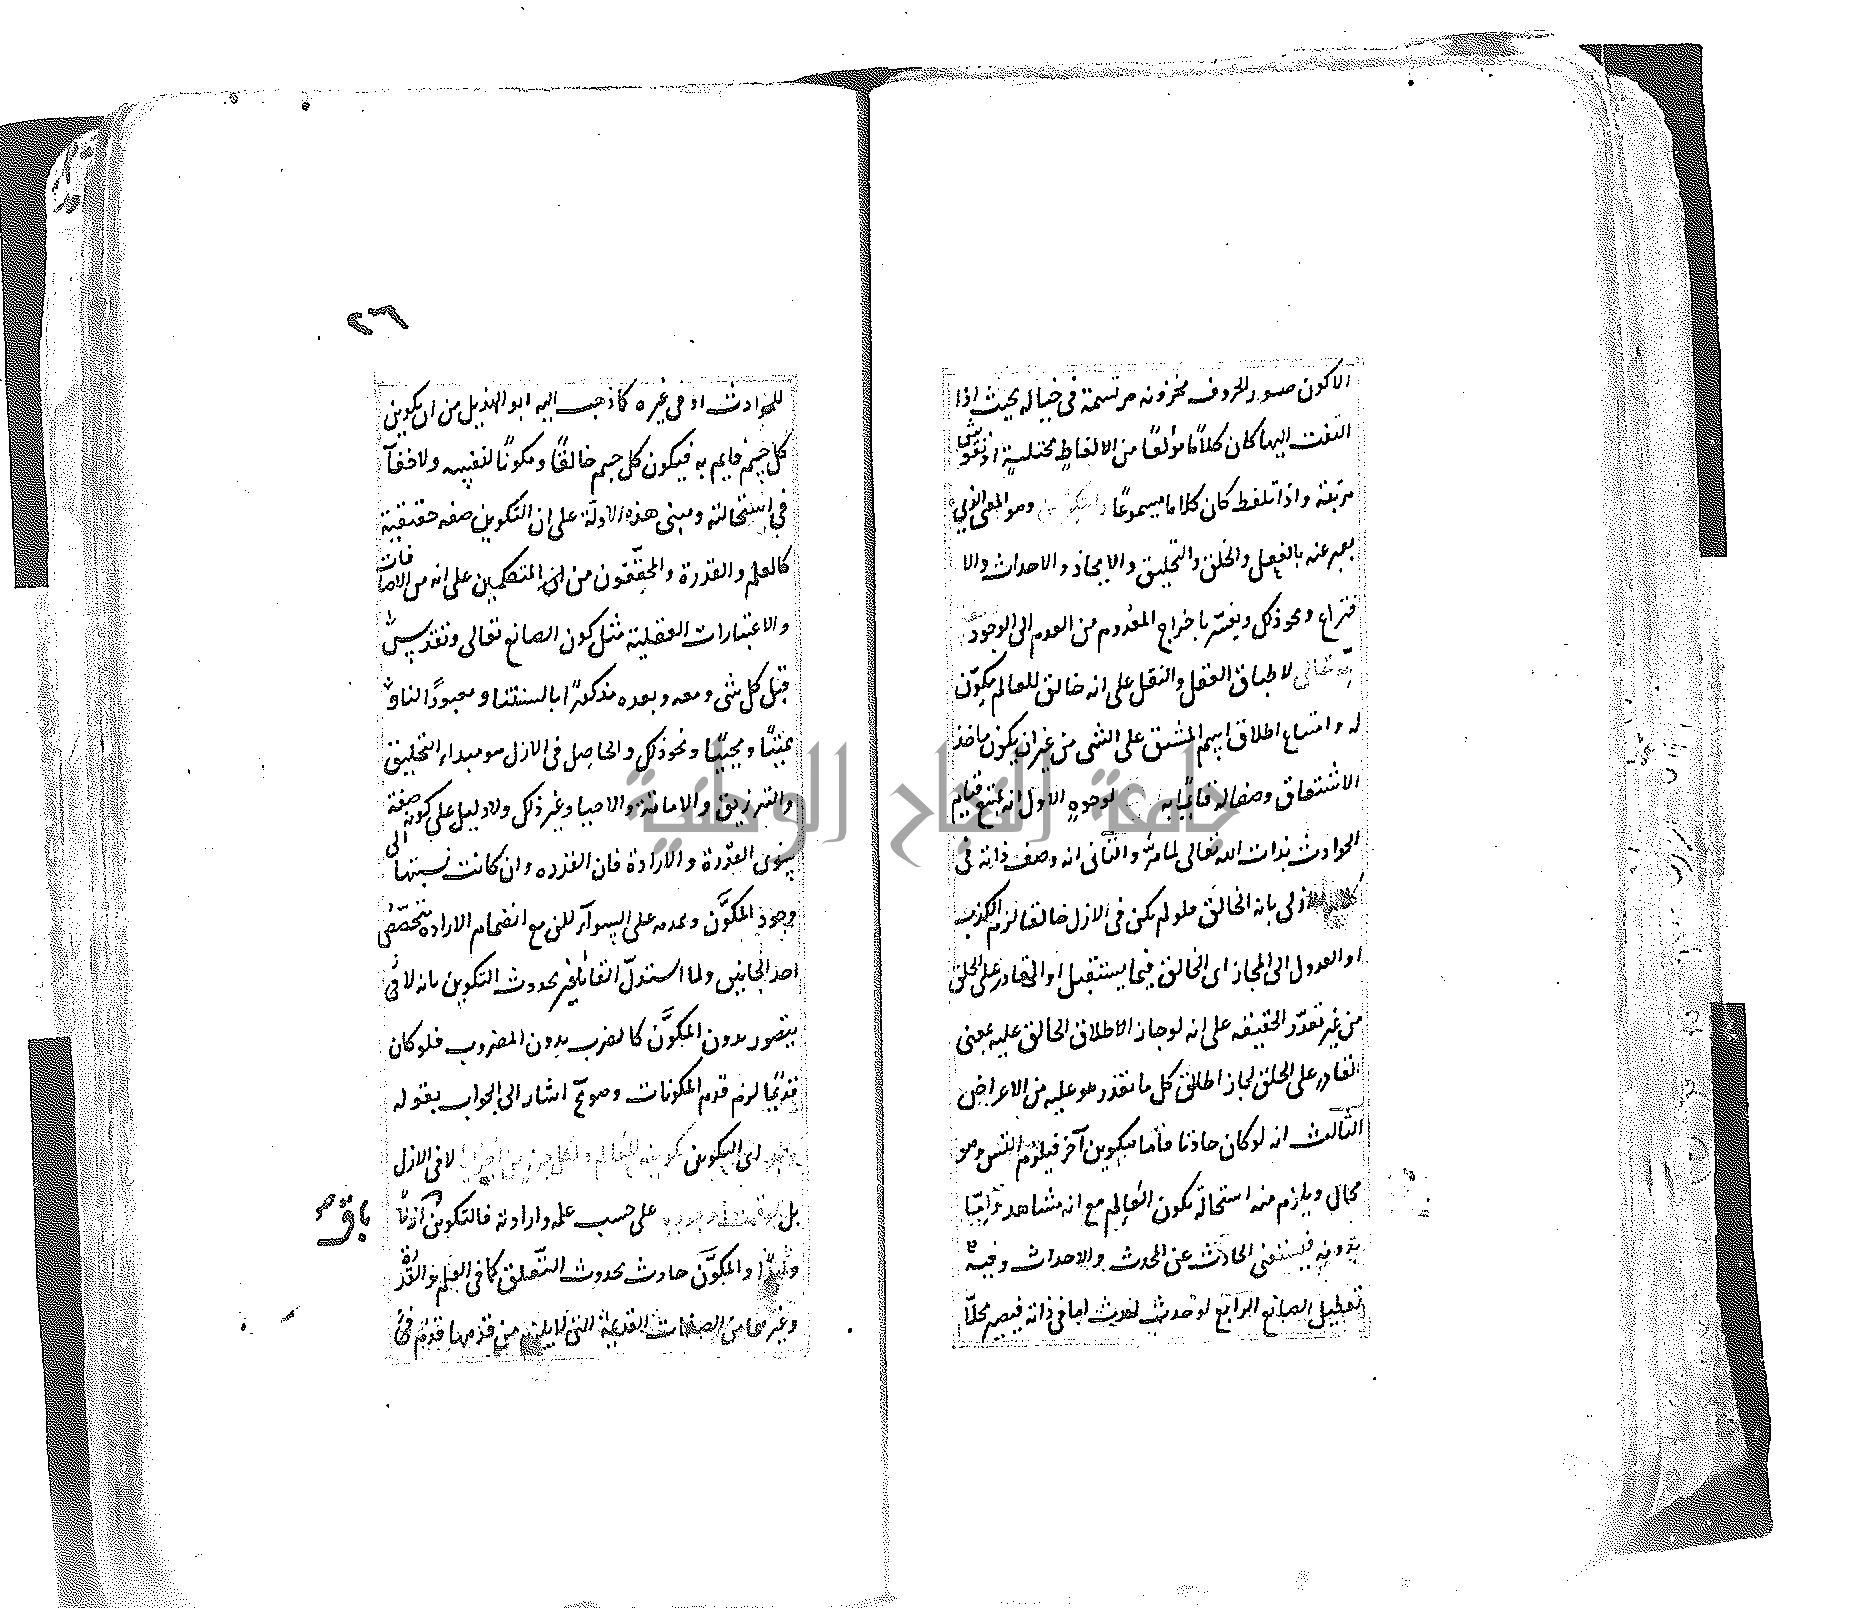 الا كون صور الحروف مخزونه مرتسمة فى خياله بحيث اذا
التفت اليها كان كلامًا مؤلفًا من الالفاظ متخيلة او نقوش
مرتبة واذا تلفظ كان كلاما مسموعًا والتكوين وهو المعنى الذى
يعبر عنه بالفعل والخلق والتخليق والايجاد والاحداث والا
ختراع ونحو ذلك ويفسّر باخراج المعدوم من العدم الى الوجود
لله تعالى لاطباق العقل والنقل على انه خالق للعالم مكوّن
له وامتناع اطلاق اسم المشتق على الشى من غير ان يكون ماخذ
الاشتقاق وصفا له قايمًا به لوجوهٍ الاول انه يمتنع قيام
الحوادث بذات الله تعالى لما مرّ والثانى انه وصف ذاته فى
الازلى بانه الخالق فلو لم يكن فى الازل خالقا لزم الكذب
او العدول الى المجاز اى الخالق فيما يستقبل او القادر على الخلق
من غير تعذّر الحقيقه على انه لو جاز الاطلاق الخالق عليه بمعنى
القادر على الخلق لجاز اطلاق كل ما يقدر هو عليه من الاعراض
الثالث انه لو كان حادثا فأما بتكوين آخر فيلزم التس وهو
محال ويلزم منه استحالة تكون العالم مع انه مشاهد وامّا
بدونه فيستغنى الحادث عن المحدث والاحداث وفيه
تعطيل الصانع الرابع لو حدث لحدث اما فى ذاته فيصير محلّا
٢٦
للحوادث او فى غيره كما ذهب اليه ابو الهذيل من ان تكوين
كل جسم قايم به فيكون كل جسم خالقًا ومكونًا لنفسه ولا خفآ
فى استحالته ومبنى هذه الادلة على ان التكوين صفه حقيقية
كالعلم والقدرة والمحققون من المتكلمين على انه من الاضافات
والاعتبارات العقلية مثل كون الصانع تعالى وتقدس
قبل كل شى ومعه وبعده ومذكورًا بالسنتنا ومعبودًا لنا و
مميتًا ومحييًا ونحو ذلك والحاصل فى الازل هو مبداء التخليق
والترزيق والاماتة والاحيا وغير ذلك ولا دليل على كونه صفة
سوى القدرة والارادة فان القدره وان كانت نسبتها الى
وجود المكوَّن وعدمه على السوآء لكن مع انضمام الارادة يتخصّص
احد الجانبين ولما استدلّ القائلين بحدوث التكوين بانه لا
يتصور بدون المكوَّن كالضرب بدون المضروب فلو كان
قديمًا لزم قدم المكونات وهو مح اشار الى الجواب بقوله
وهو اى التكوين تكوينه للعالم ولكل جزء من اجزائه لا فى الازل
بل لوقت وجوده على حسب علمه وارادته فالتكوين
باق
والمكوَّن حادث بحدوث التعلق كما فى العلم والقدرة
وغيرهما من الصفات القديمة التى لا يلزم من قدمها قدم